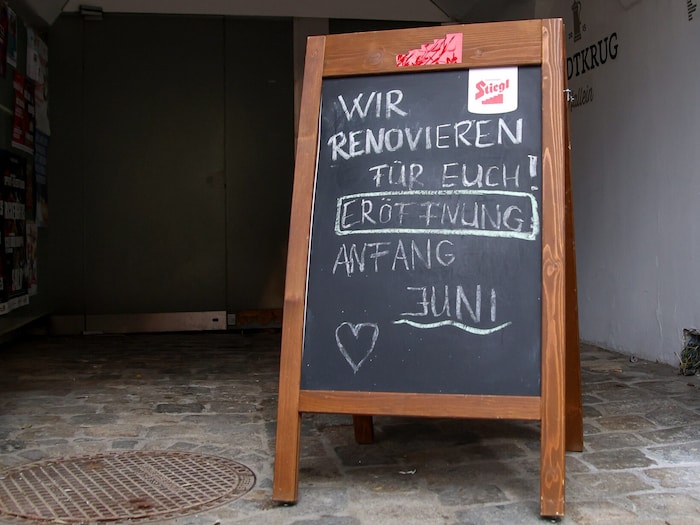 Stiegl
WIR
RENOVIEREN
FÜR EUCH!
ERÖFFNUNG
ANFANG
JUNI
DTKRUG
allein